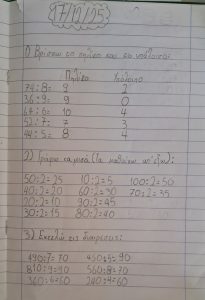 17/12/25
1) Βρίσκω το πηλίκο και το υπόλοιπο:
Πηλίκο Υπόλοιπο
74:8= 9 2
36:9= 9 0
64:6= 10 4
52:7= 7 3
44:5= 8 4
2) Γράφω τα μισά (Τα μαθαίνω απ' έξω):
50:2=25 10:2=5 100:2=50
40:2=20 60:2=30 70:2=35
20:2=10 90:2=45
30:2=15 80:2=40
3) Εκτελώ τις διαιρέσεις:
490:7=70 450:5=90
810:9=90 560:8=70
360:6=60 240:4=60